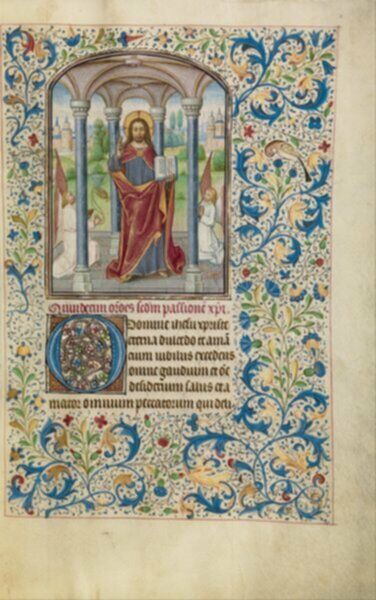 Quindecim orões scdm passionē xpi.
O Domine ihesu xpriste
eterna dulcedo et amā
cium iubilus excedens
omne gaudium et oē
desiderium salus et a
mator omnium peccatorum qui deli